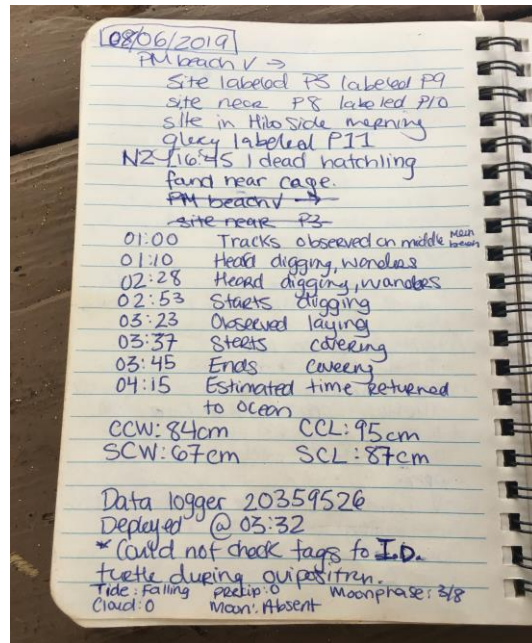 08/06/2019
PM beach ✓ →
Site labeled P3 labeled P9
site near P8 labeled P10
site in Hilo side morning
glory labeled P11
N2 16:45 1 dead hatchling
fand near cage.
PM beach ✓ →
site near P3
01:00 Tracks observed on middle Main beach
01:10 Heard digging, wanders
02:28 Heard digging, wanders
02:53 Starts digging
03:23 Observed laying
03:37 Starts covering
03:45 Ends covering
04:15 Estimated time returned
to ocean
CCW: 84cm CCL: 95cm
SCW: 67cm SCL: 87cm
Data logger 20359526
Deployed @ 03:32
* Could not check tags to I.D.
turtle during oviposition.
Tide: Falling precip: 0 Moonphase: 3/8
Cloud: 0 Moon: Absent